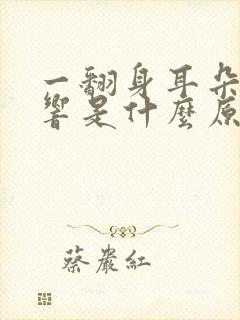 一翻身耳朵
響是什麼原
蔡嚴紅